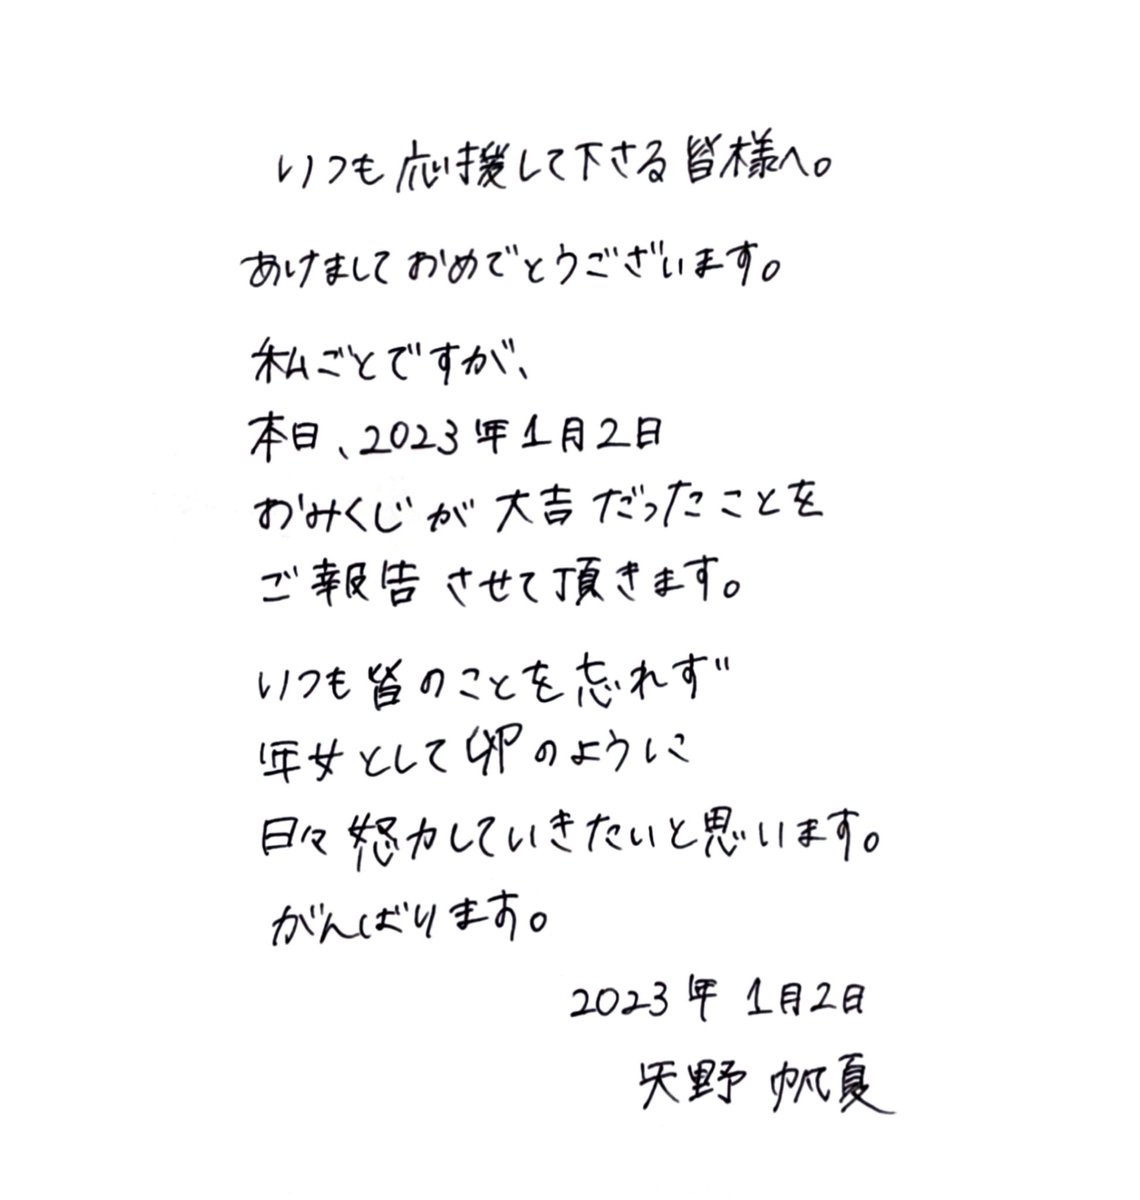 いつも応援して下さる皆様へ。
あけましておめでとうございます。
私ごとですが、
本日、2023年1月2日
おみくじが大吉だったことを
ご報告させて頂きます。
いつも皆のことを忘れず
年女として卯のように
日々怒力していきたいと思います。
がんばります。
2023年 1月2日
矢野 帆夏